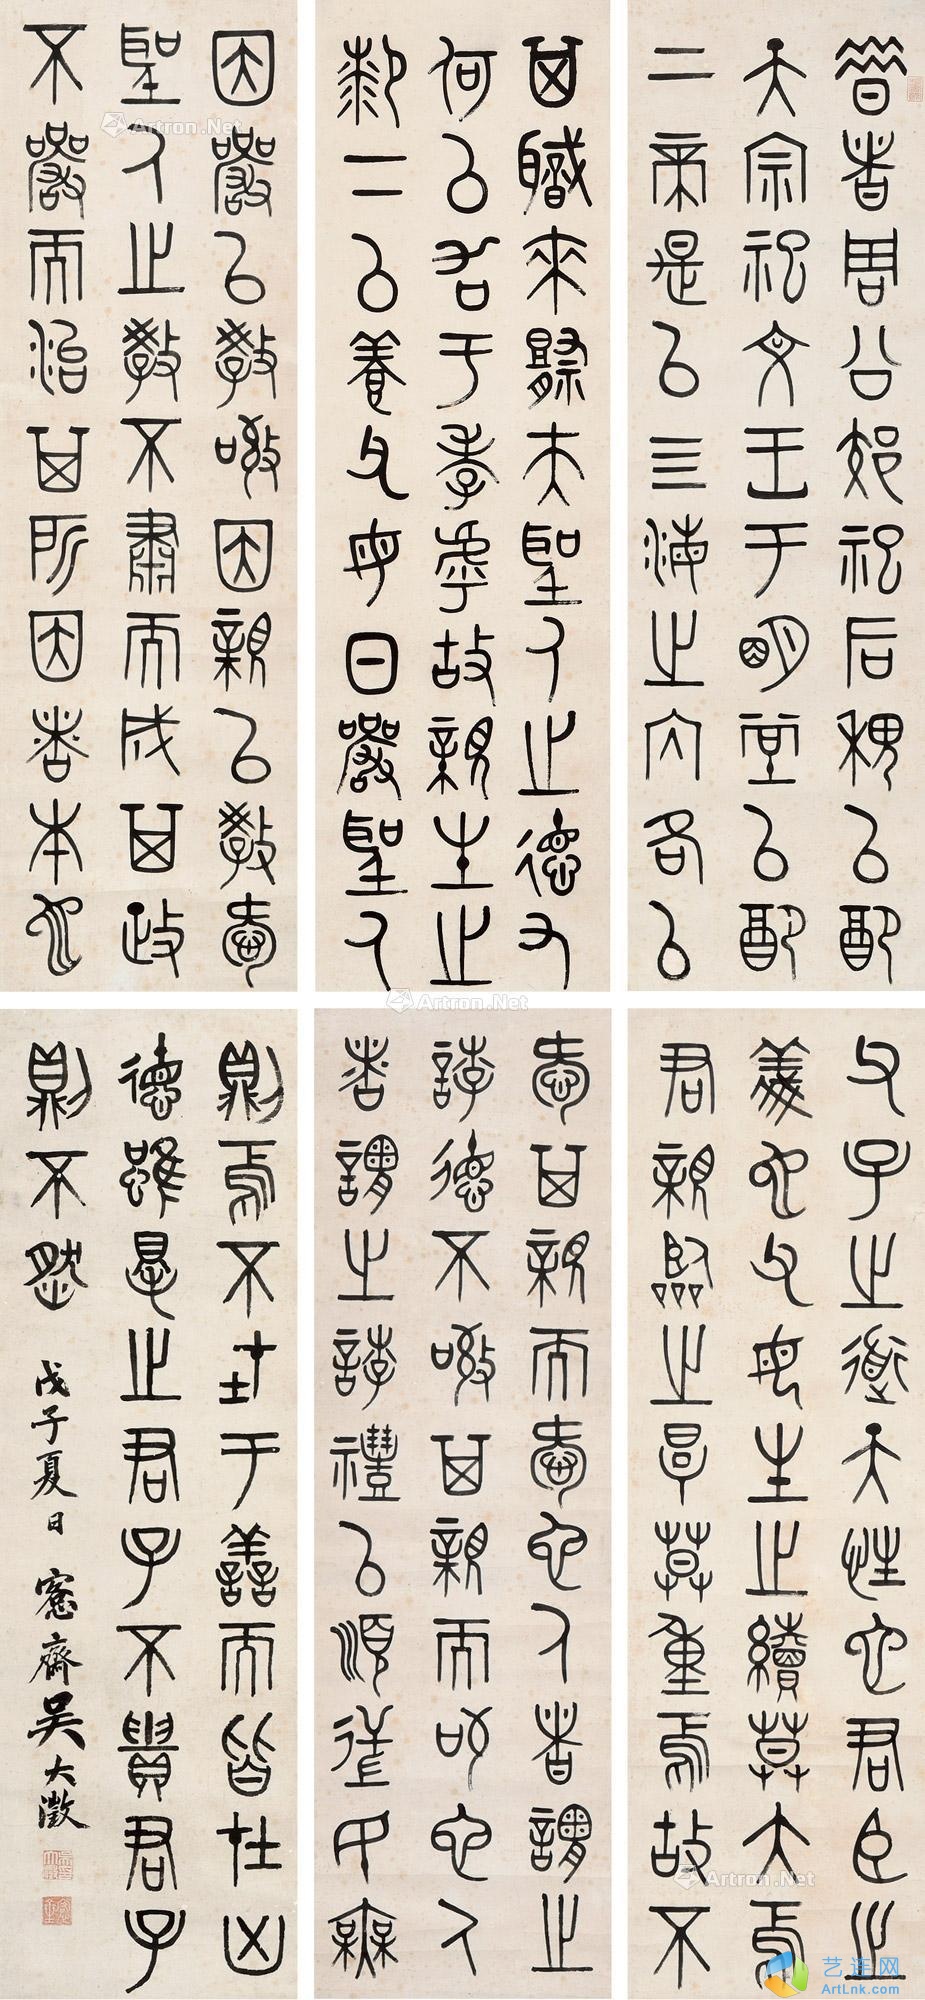 昔者周公郊祀后稷以配
天宗祀文王于明堂以配
上帝是以四海之内各以
其職來祭夫聖人之德又
何以加于孝虖故親生之
膝下以養父母日嚴聖人
因嚴以教敬因親以教愛
聖人之教不肅而成其政
不嚴而治其所因者本也
父子之道天性也君臣之
義也父母生之續莫大焉
君親臨之厚莫重焉故不
愛其親而愛它人者謂之
誖德不敬其親而敬它人
者謂之誖禮以順逆民無
則焉不在于善而皆在凶
德雖得之君子不貴君子
則不然 戊子夏日 愙齋吴大澂
Artron.Net
Artron.Net
Artron.Net
Artron.Net
Artron.Net
艺连网
ArtLnk.com